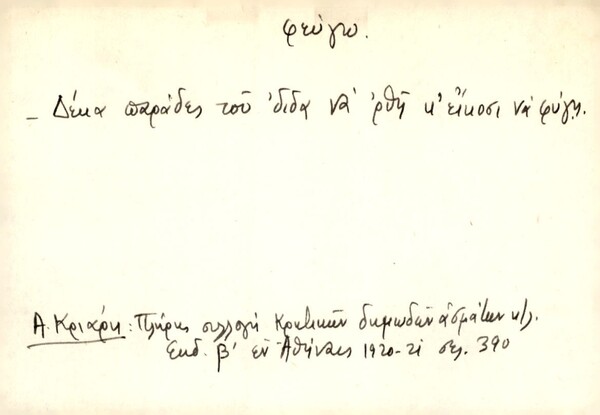 φεύγω.
– Δέκα παράδες τοῦ 'διδα νά 'ρθῇ κ' εἴκοσι νὰ φύγῃ.
Α. Κριάρη: Πλήρης συλλογή Κρητικῶν δημωδῶν ἀσμάτων κ/λ.
Ἐκδ. β' ἐν Ἀθήναις 1920-21 σελ. 390